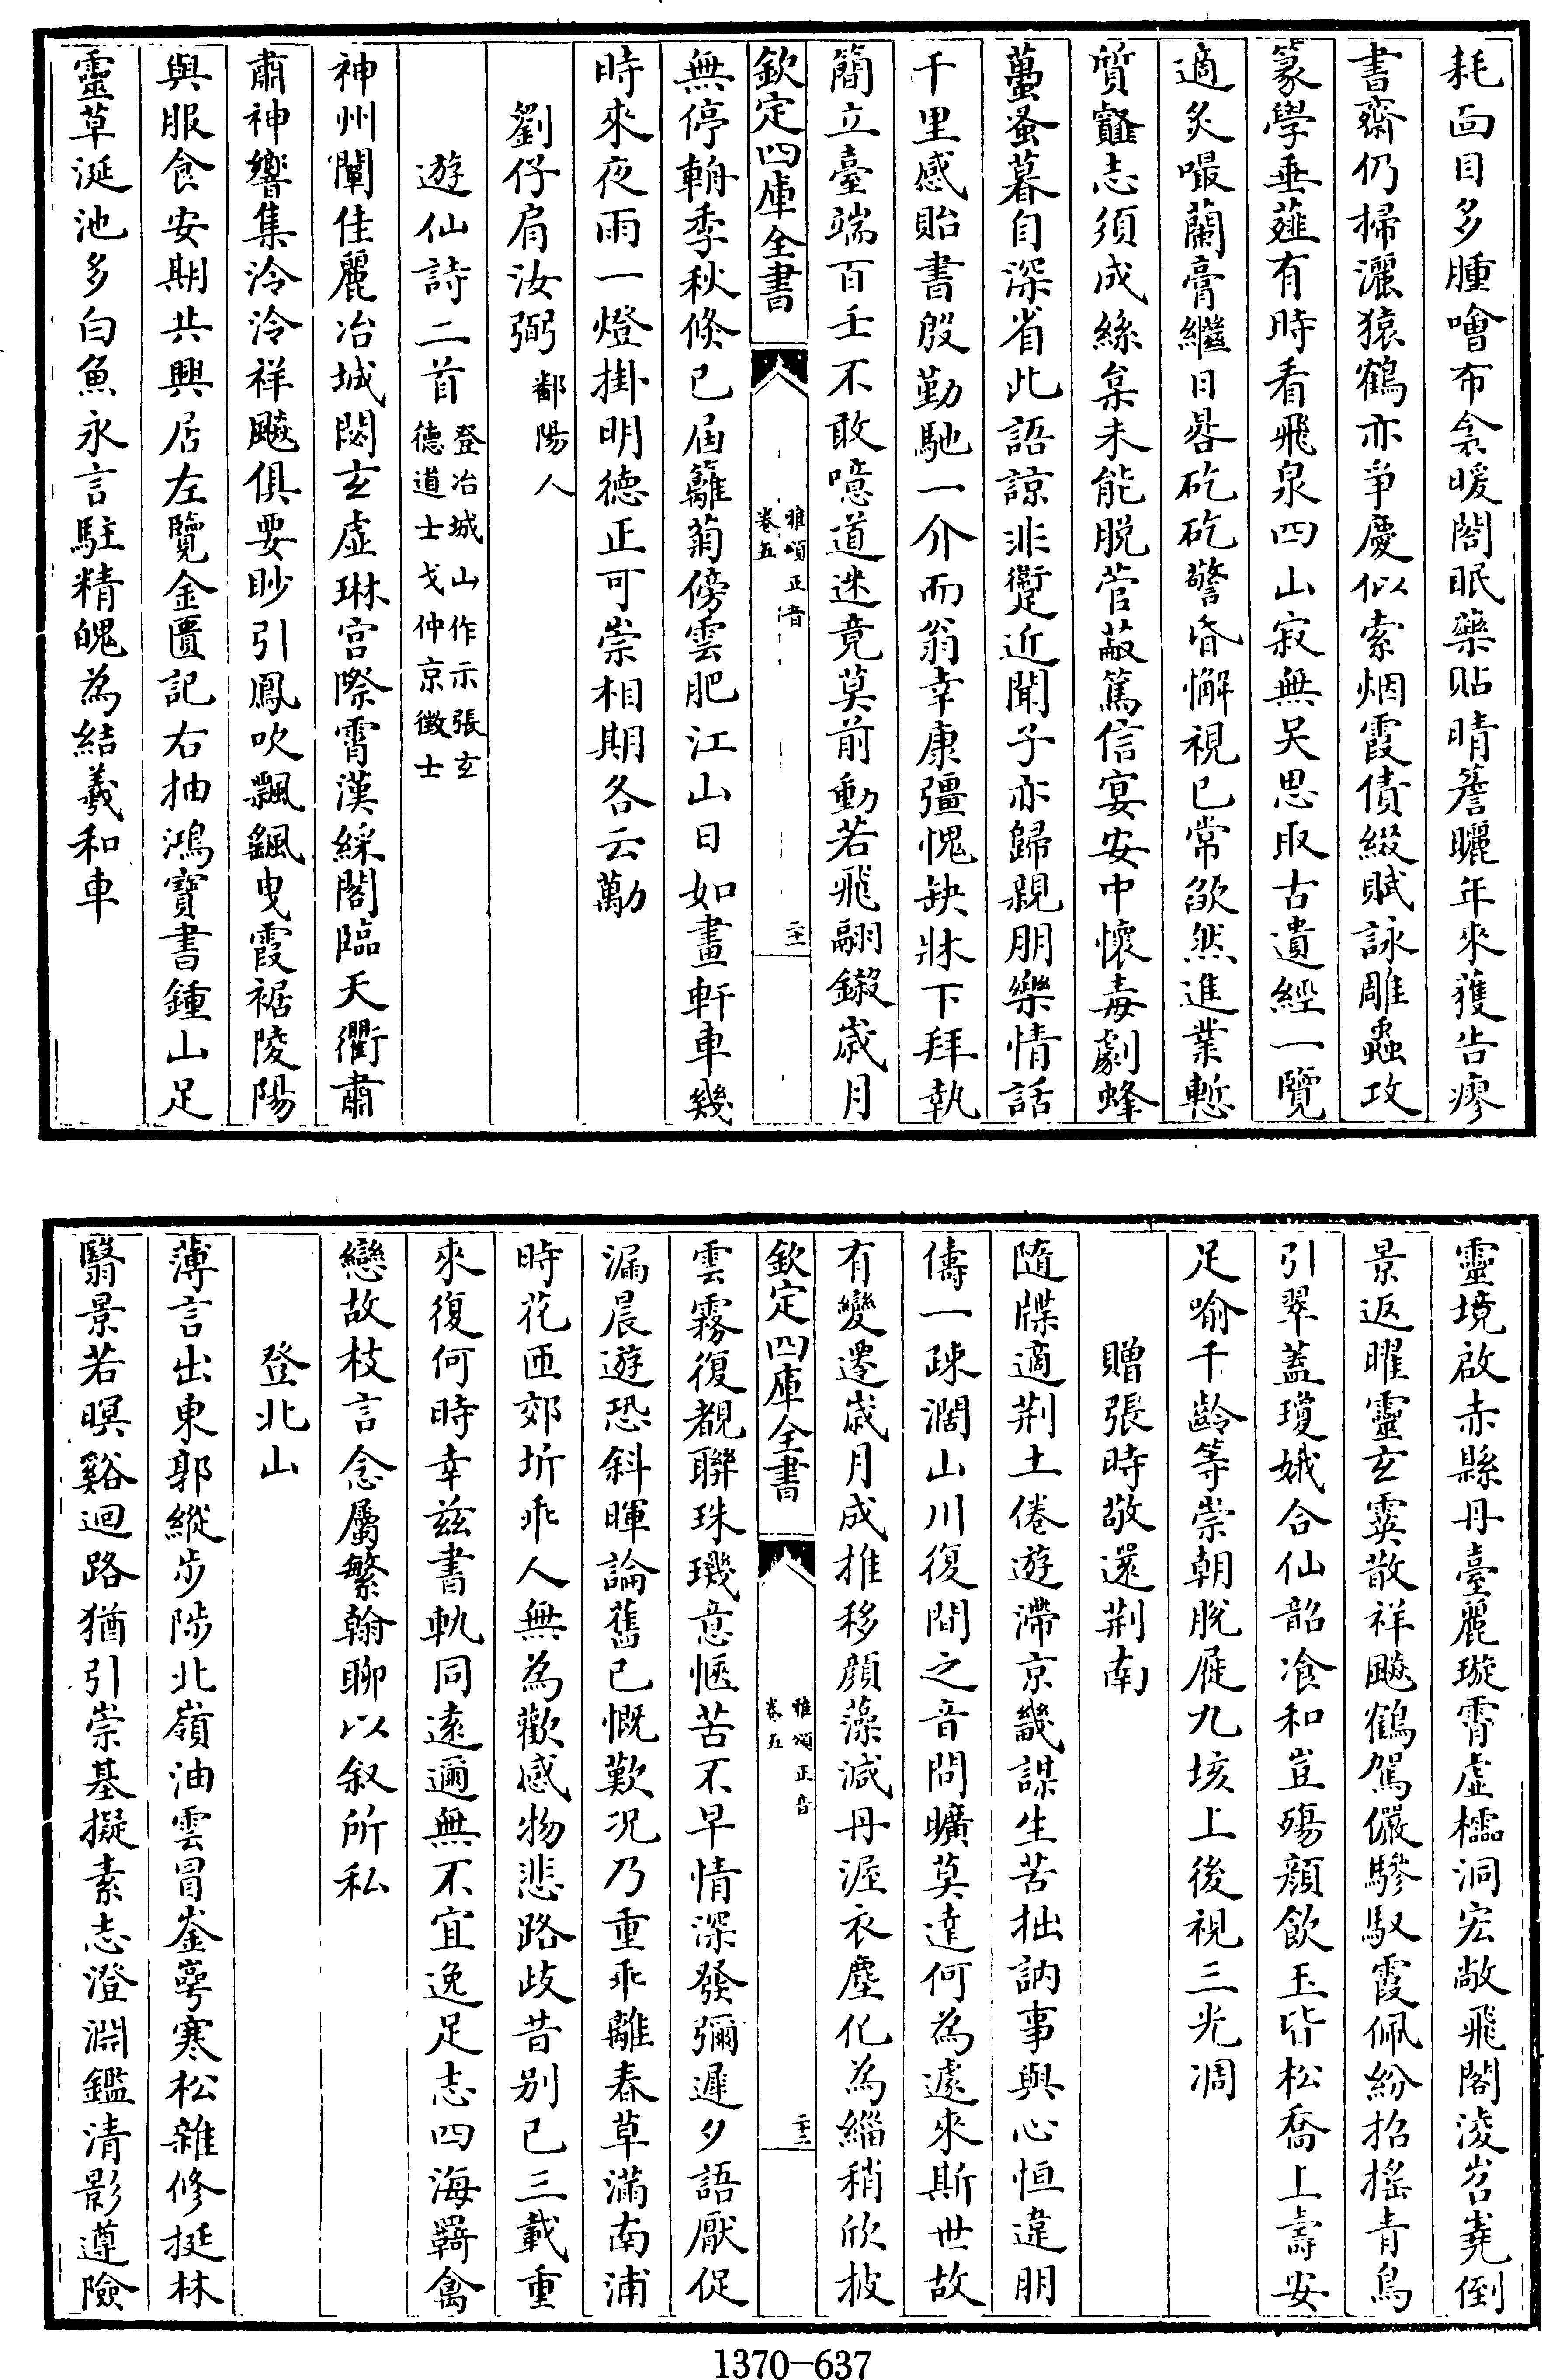 耗面目多腫噲布衾暖閤眠藥貼晴簷曬年來獲告瘳
書齋仍掃灑猿鶴亦爭慶似索烟霞債綴賦詠雕蟲攻
篆學垂薤有時看飛泉四山寂無吴思取古遺經一覽
適炙嘬蘭膏繼日晷矻矻警昏懈視已常欿然進業慙
質䶢志須成絲枲未能脱菅蒯篤信宴安中懷毒劇蜂
蠆蚤暮自深省此語諒非躗近聞子亦歸親朋樂情話
千里感貽書殷勤馳一介而翁幸康彊愧缺牀下拜執
簡立臺端百壬不敢噫道迷竟莫前動若飛翮鎩歳月
欽定四庫全書
雅頌正音
卷五
二十一
無停輈季秋倐已屆籬菊傍雲肥江山日如畫軒車幾
時來夜雨一燈掛明德正可崇相期各云勱
劉仔肩汝弼鄱陽人
遊仙詩二首登冶城山作示張玄
德道士戈仲京徵士
神州闡佳麗冶城閟玄虚琳宫際霄漢綵閣臨天衢肅
肅神響集泠泠祥飈俱要眇引鳳吹飄颻曳霞裾陵陽
與服食安期共興居左覽金匱記右抽鴻寶書鍾山足
靈草涎池多白魚永言駐精魄為結羲和車
靈境啟赤縣丹臺麗璇霄虚櫺洞宏敞飛閣淩岧嶤倒
景返曜靈玄霙散祥飈鶴駕儼驂馭霞佩紛招搖青鳥
引翠蓋瓊娥合仙韶飡和豈殤顔飲玉皆松喬上壽安
足喻千齡等崇朝脫屣九垓上後視三光凋
贈張時敬還荆南
隨牒適荆土倦遊滯京畿謀生苦拙訥事與心恒違朋
儔一踈濶山川復間之音問曠莫達何為遽來斯世故
有變遷歳月成推移顔藻減丹渥衣塵化為緇稍欣披
欽定四庫全書
雅頌正音
卷五
二十二
雲霧復覩聯珠璣意愜苦不早情深發彌遲夕語厭促
漏晨遊恐斜暉論舊已慨歎況乃重乖離春草滿南浦
時花匝郊圻乖人無為歡感物悲路歧昔別已三載重
來復何時幸兹書軌同遠邇無不宜逸足志四海羇禽
戀故枝言念屬繁翰聊以叙所私
登北山
薄言出東郭縱步陟北嶺油雲冒崟崿寒松雜修挺林
翳景若暝谿迴路猶引崇基擬素志澄淵鑑清影遵險
1370-637